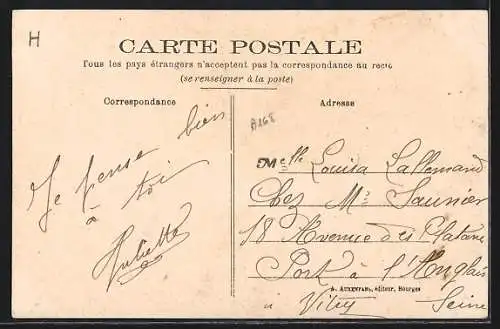 H
CARTE POSTALE
Tous les pays étrangers n'acceptent pas la correspondance au recto
(se renseigner à la poste)
Correspondance
Adresse
A268
Je pense bien
à toi
Juliette
Melle Louisa Lallemand
Chez Mr Saunier
18 Avenue des Platane
Port à l'Anglais
A. AUXENFANS, éditeur, Bourges
Vitry Seine